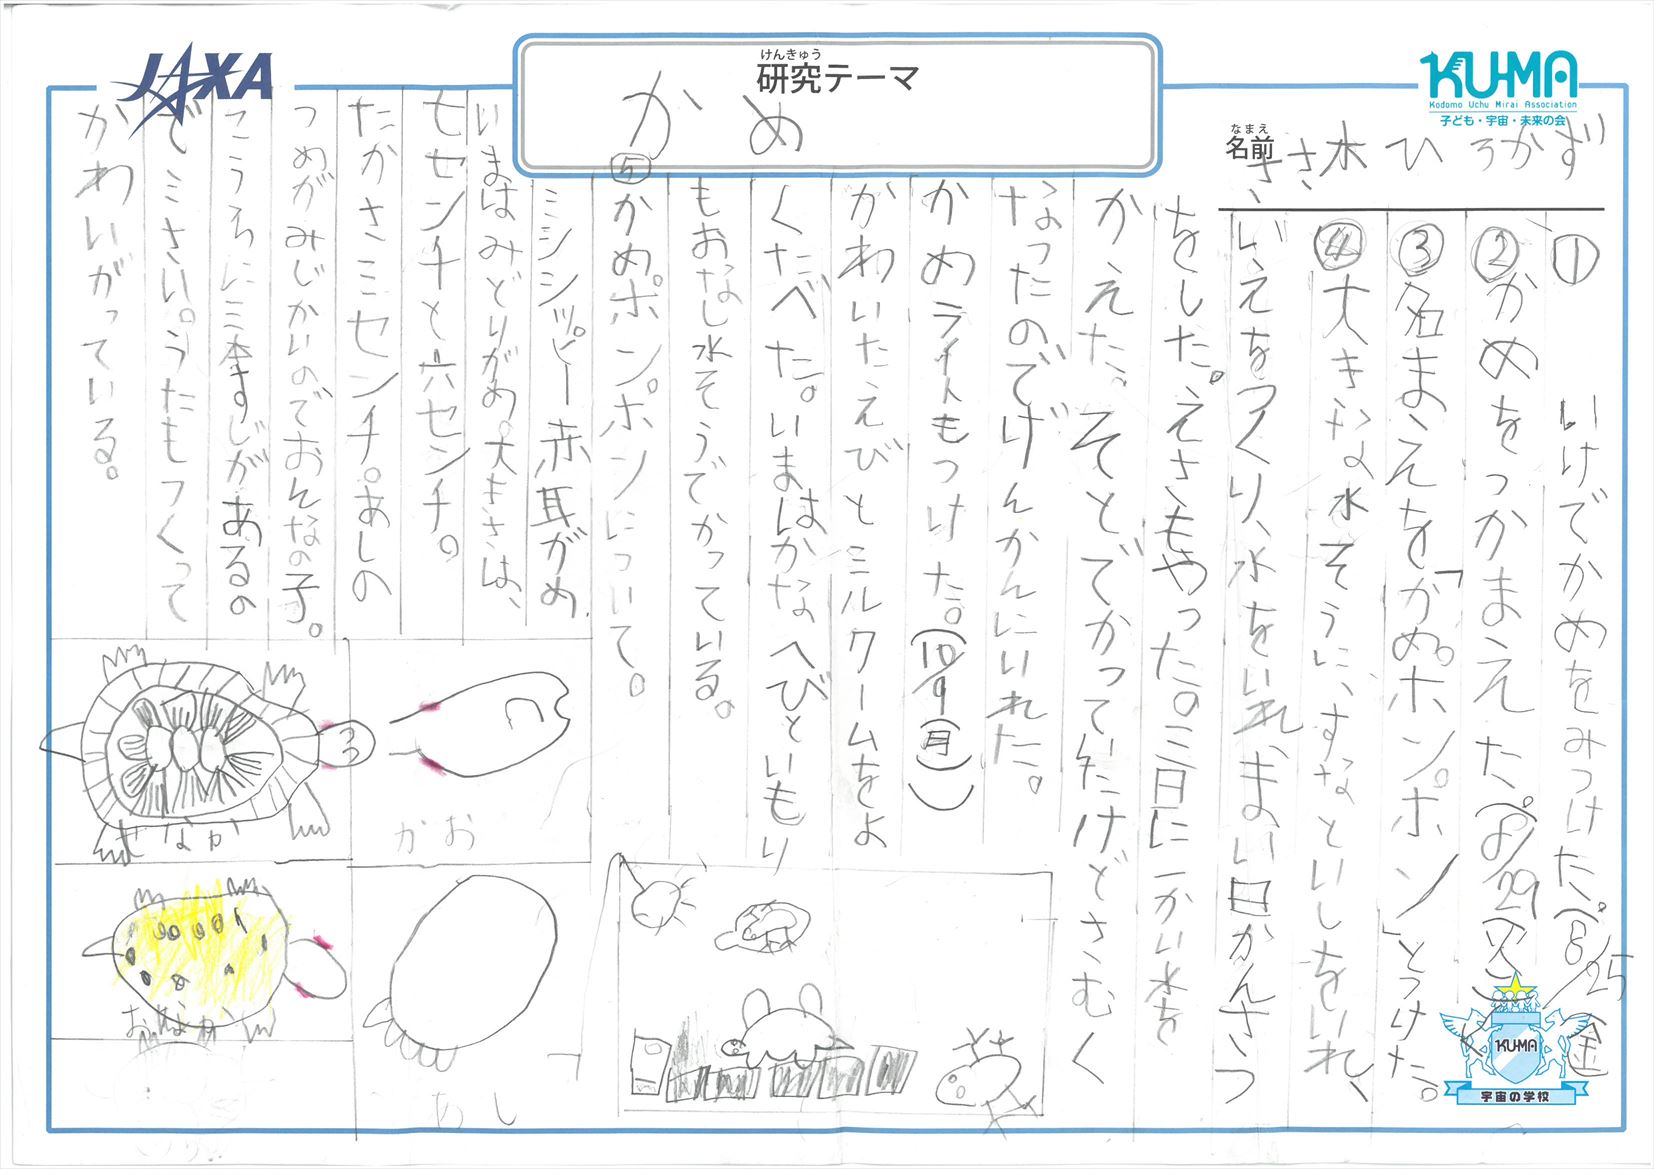 JAXA
けんきゅう
研究テーマ
かめ
KU-MA
Kodomo Uchu Mirai Association
子ども・宇宙・未来の会
なまえ
名前
さ、さ木ひろかず
① いけでかめをみつけた。(8/25(金
②かめをつかまえた。(8/29(火)
③名まえを「かめ。ポンポン」とつけた。
④大きな水そうに、すなといしをいれ、
いえをつくり、水をいれ、まい日かんさつ
をした。えさもやった。三日に一かい水を
かえた。そとでかっていたけどさむく
なったのでげんかんにいれた。
かめライトもつけた。(10/9(月))
かわいたえびとミルクームをよ
くたべた。いまはかなへびといもり
もおなし水そうでかっている。
⑤かめ。ポンポンについて。
ミシシッピー赤耳がめ
いまはみどりがめ。大きさは、
七センチと六センチ。
たかさミセンチ。あしの
つめがみじかいのでおんなの子。
こうらに三本すじがあるの
でミさい。うたもつくって
かわいがっている。
せなか
かお
おなか
あし
KU-MA
宇宙の学校